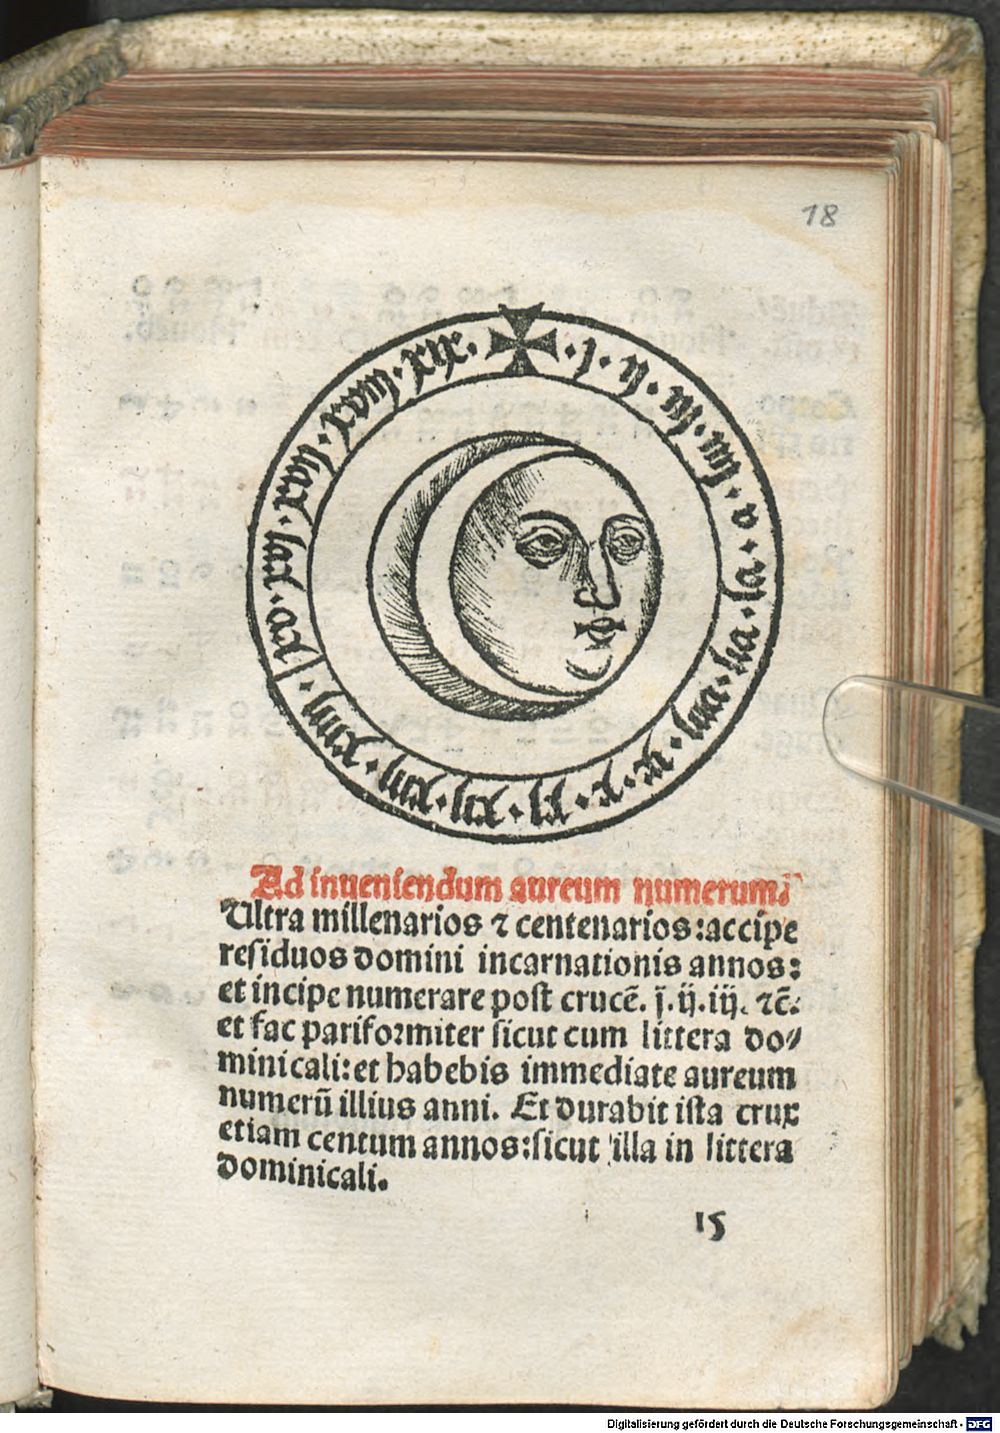 18
✠ · j · ij · iij · iiij · v · vj · vij · viij · ix · x · xj · xij · xiij · xiiij · xv · xvj · xvij · xviij · xix ·
Ad inueniendum aureum numerum.
Ultra millenarios ⁊ centenarios: accipe
residuos domini incarnationis annos:
et incipe numerare post crucē. j. ij. iij. ⁊c̄.
et fac pariformiter sicut cum littera do⸗
minicali: et habebis immediate aureum
numerū illius anni. Et durabit ista crux
etiam centum annos: sicut illa in littera
dominicali.
15
Digitalisierung gefördert durch die Deutsche Forschungsgemeinschaft - DFG